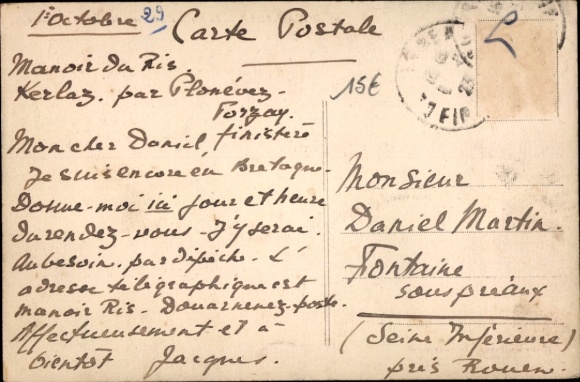 1er Octobre 29
Carte Postale
Manoir du Ris.
Kerlaz. par Plonévez-
Porzay.
finistère
Mon cher Daniel
Je suis encore en Bretagne.
Donne-moi ici jour et heure
du rendez-vous - J'y serai.
Au besoin. par dépêche. L'
adresse télégraphique est
manoir Ris. Douarnenez-poste.
Affectueusement et à
bientôt Jacques.
15€
Monsieur
Daniel Martin.
Fontaine
sous préaux
(Seine Inférieure)
près Rouen.